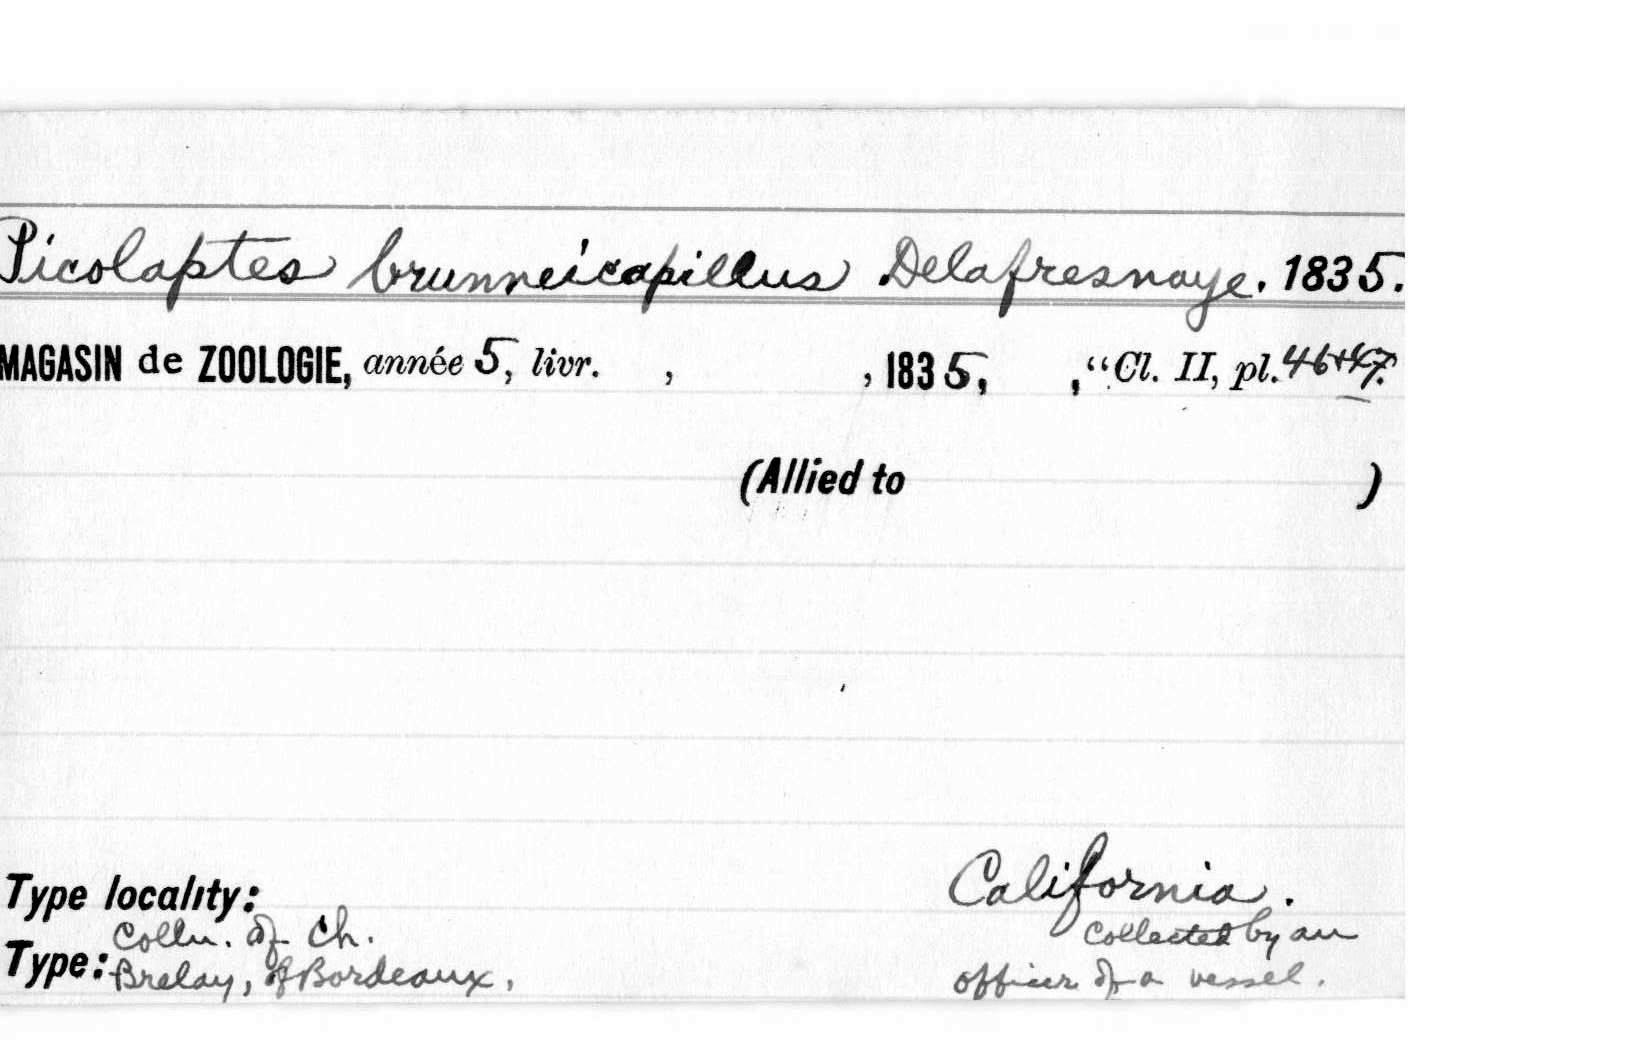 Picolaptes brunneicapillus Delafresnaye. 1835.
MAGASIN de ZOOLOGIE, année 5, livr. , , 1835, , “Cl. II, pl. 46+47.
(Allied to )
Type locality: California.
Type: Colln. of Ch. Brelay, of Bordeaux,
collected by an
officer of a vessel.